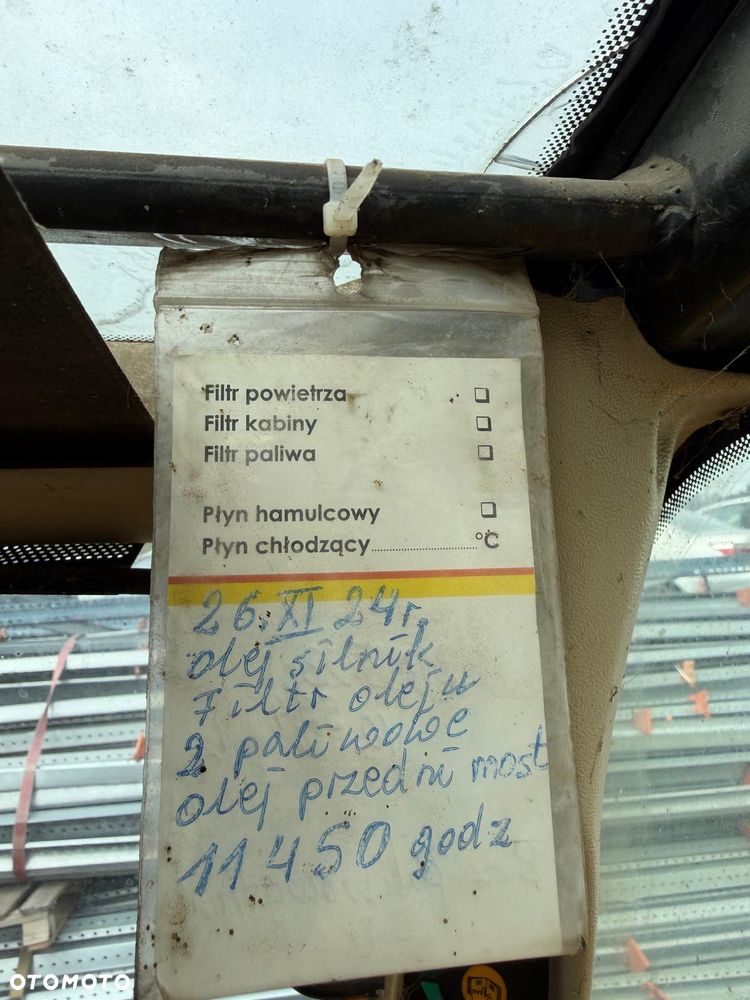 Filtr powietrza ❑
Filtr kabiny ❑
Filtr paliwa ❑
Płyn hamulcowy ❑
Płyn chłodzący..............................°C
26.XI 24r.
olej silnik
Filtr oleju
2 paliwowe
olej przedni most
11450 godz
OTOMOTO